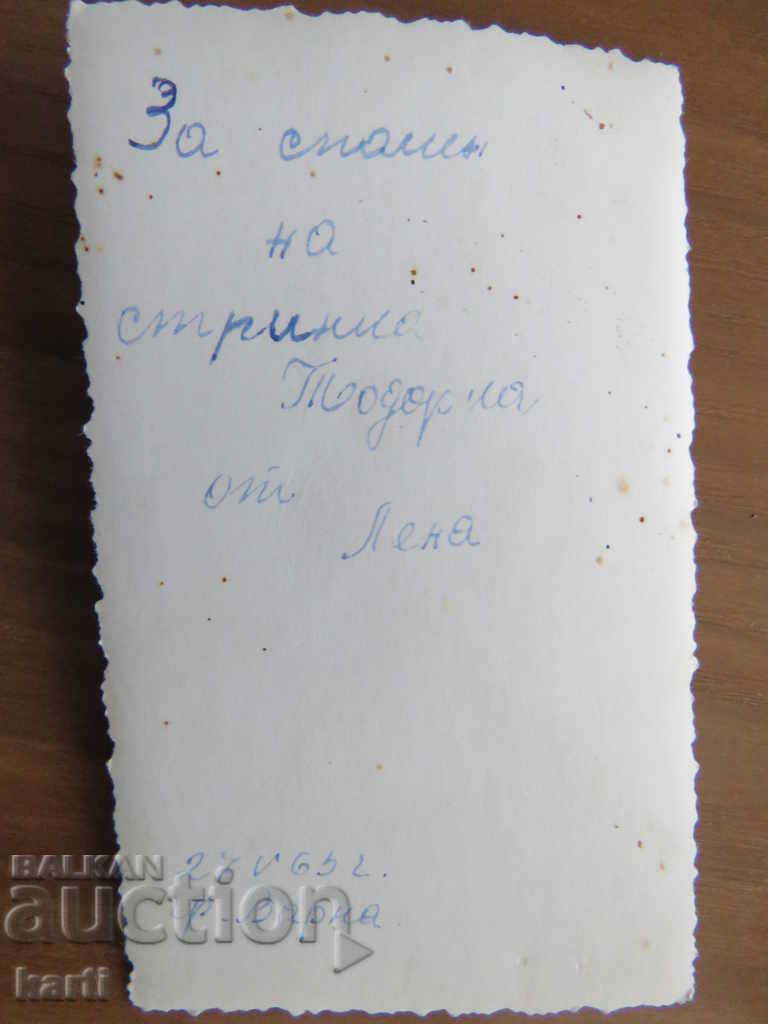 За спомен
на
стринка
Тодорка
от
Лена
V 65 г.
Варна
BALKAN
auction
karti